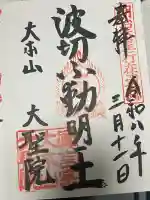 奉拝
令和八年
三月十一日
波切不動明王
大本山
大聖院